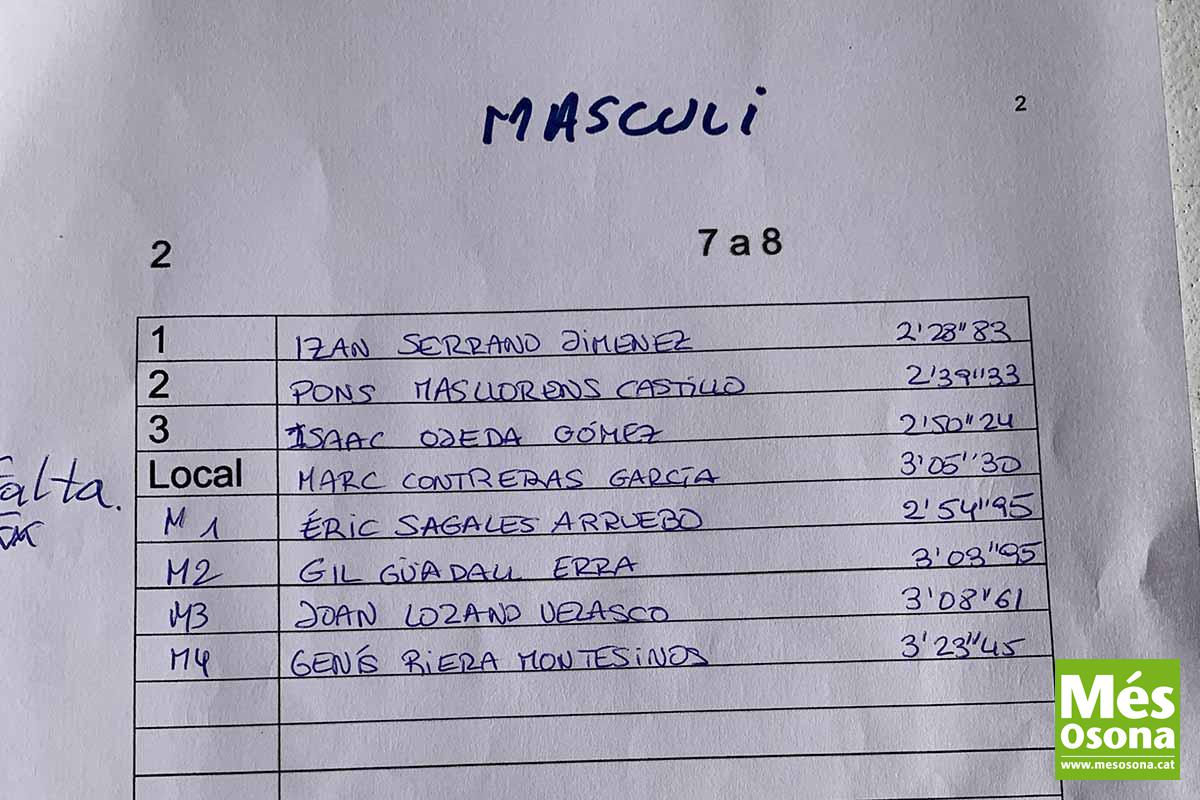 MASCULI
2
2 7 a 8
1 IZAN SERRANO JIMENEZ 2'28"83
2 PONS MASLLORENS CASTILLO 2'39"33
3 ISAAC OJEDA GÓMEZ 2'50"24
Local MARC CONTRERAS GARCÍA 3'05"30
falta.
M 1 ÉRIC SAGALES ARRUEBO 2'54"95
M2 GIL GÜADALL ERRA 3'03"95
M3 JOAN LOZANO VELASCO 3'08"61
M4 GENÍS RIERA MONTESINOS 3'23"45
Més
Osona
www.mesosona.cat